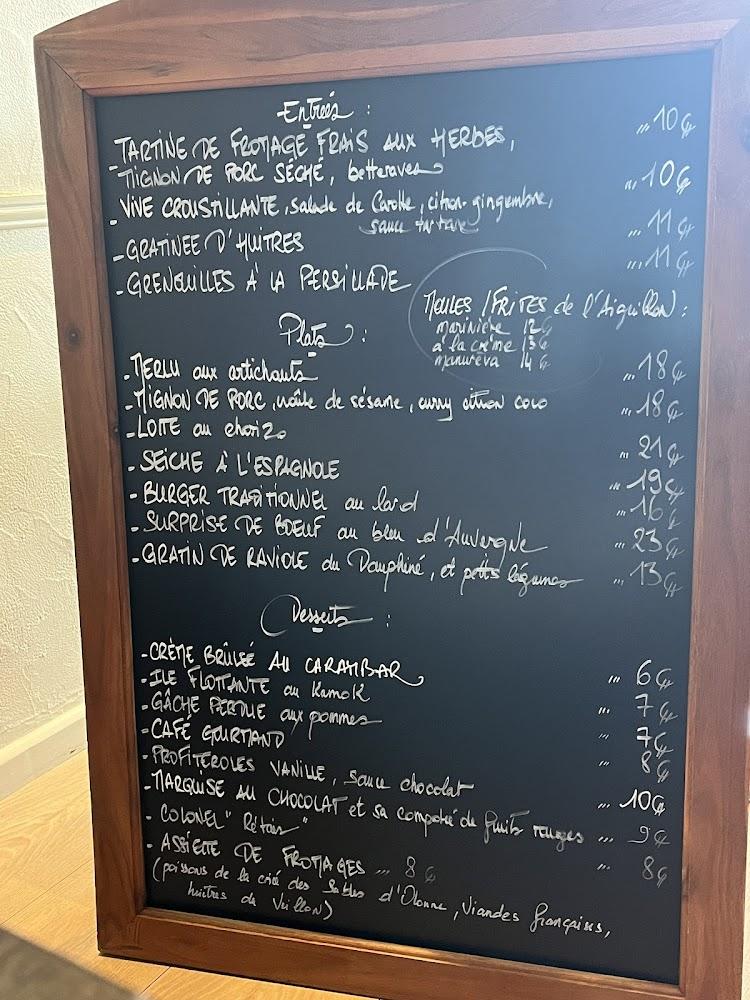 Entrées :
- TARTINE DE FROMAGE FRAIS AUX HERBES, ... 10€
MIGNON DE PORC SÉCHÉ, betteraves
- VIVE CROUSTILLANTE, salade de Carotte, citron-gingembre, ... 10€
sauce tartare
- GRATINEE D'HUITRES ... 11€
- GRENOUILLES À LA PERSILLADE ... 11€
MOULES / FRITES de l'Aiguillon :
marinière 12€
à la crème 13€
manureva 14€
Plats :
- MERLU aux artichauts ... 18€
- MIGNON DE PORC, huile de sésame, curry citron coco ... 18€
- LOTTE au chorizo ... 21€
- SEICHE À L'ESPAGNOLE ... 19€
- BURGER TRADITIONNEL au lard ... 16€
- SURPRISE DE BOEUF au bleu d'Auvergne ... 23€
- GRATIN DE RAVIOLE du Dauphiné, et petits légumes ... 13€
Desserts :
- CRÈME BRÛLÉE AU CARAMBAR ... 6€
- ILE FLOTTANTE au Kamok ... 7€
- GÂCHE PERDUE aux pommes ... 7€
- CAFÉ GOURMAND ... 8€
- PROFITEROLES VANILLE, sauce chocolat ... 10€
- MARQUISE AU CHOCOLAT et sa compotée de fruits rouges ... 9€
- COLONEL " Rétais " ... 8€
- ASSIETTE DE FROMAGES ... 8€
(poissons de la criée des Sables d'Olonne, Viandes françaises,
huîtres du Veillon)